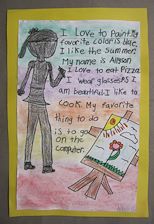 I Love to Paint. My
favorite color is blue.
I like the summer.
My name is Allyson
I Love to eat Pizza.
I wear glasses. I
am beautiful. I like to
cook. My favorite
thing to do
is to go
on the
computer.